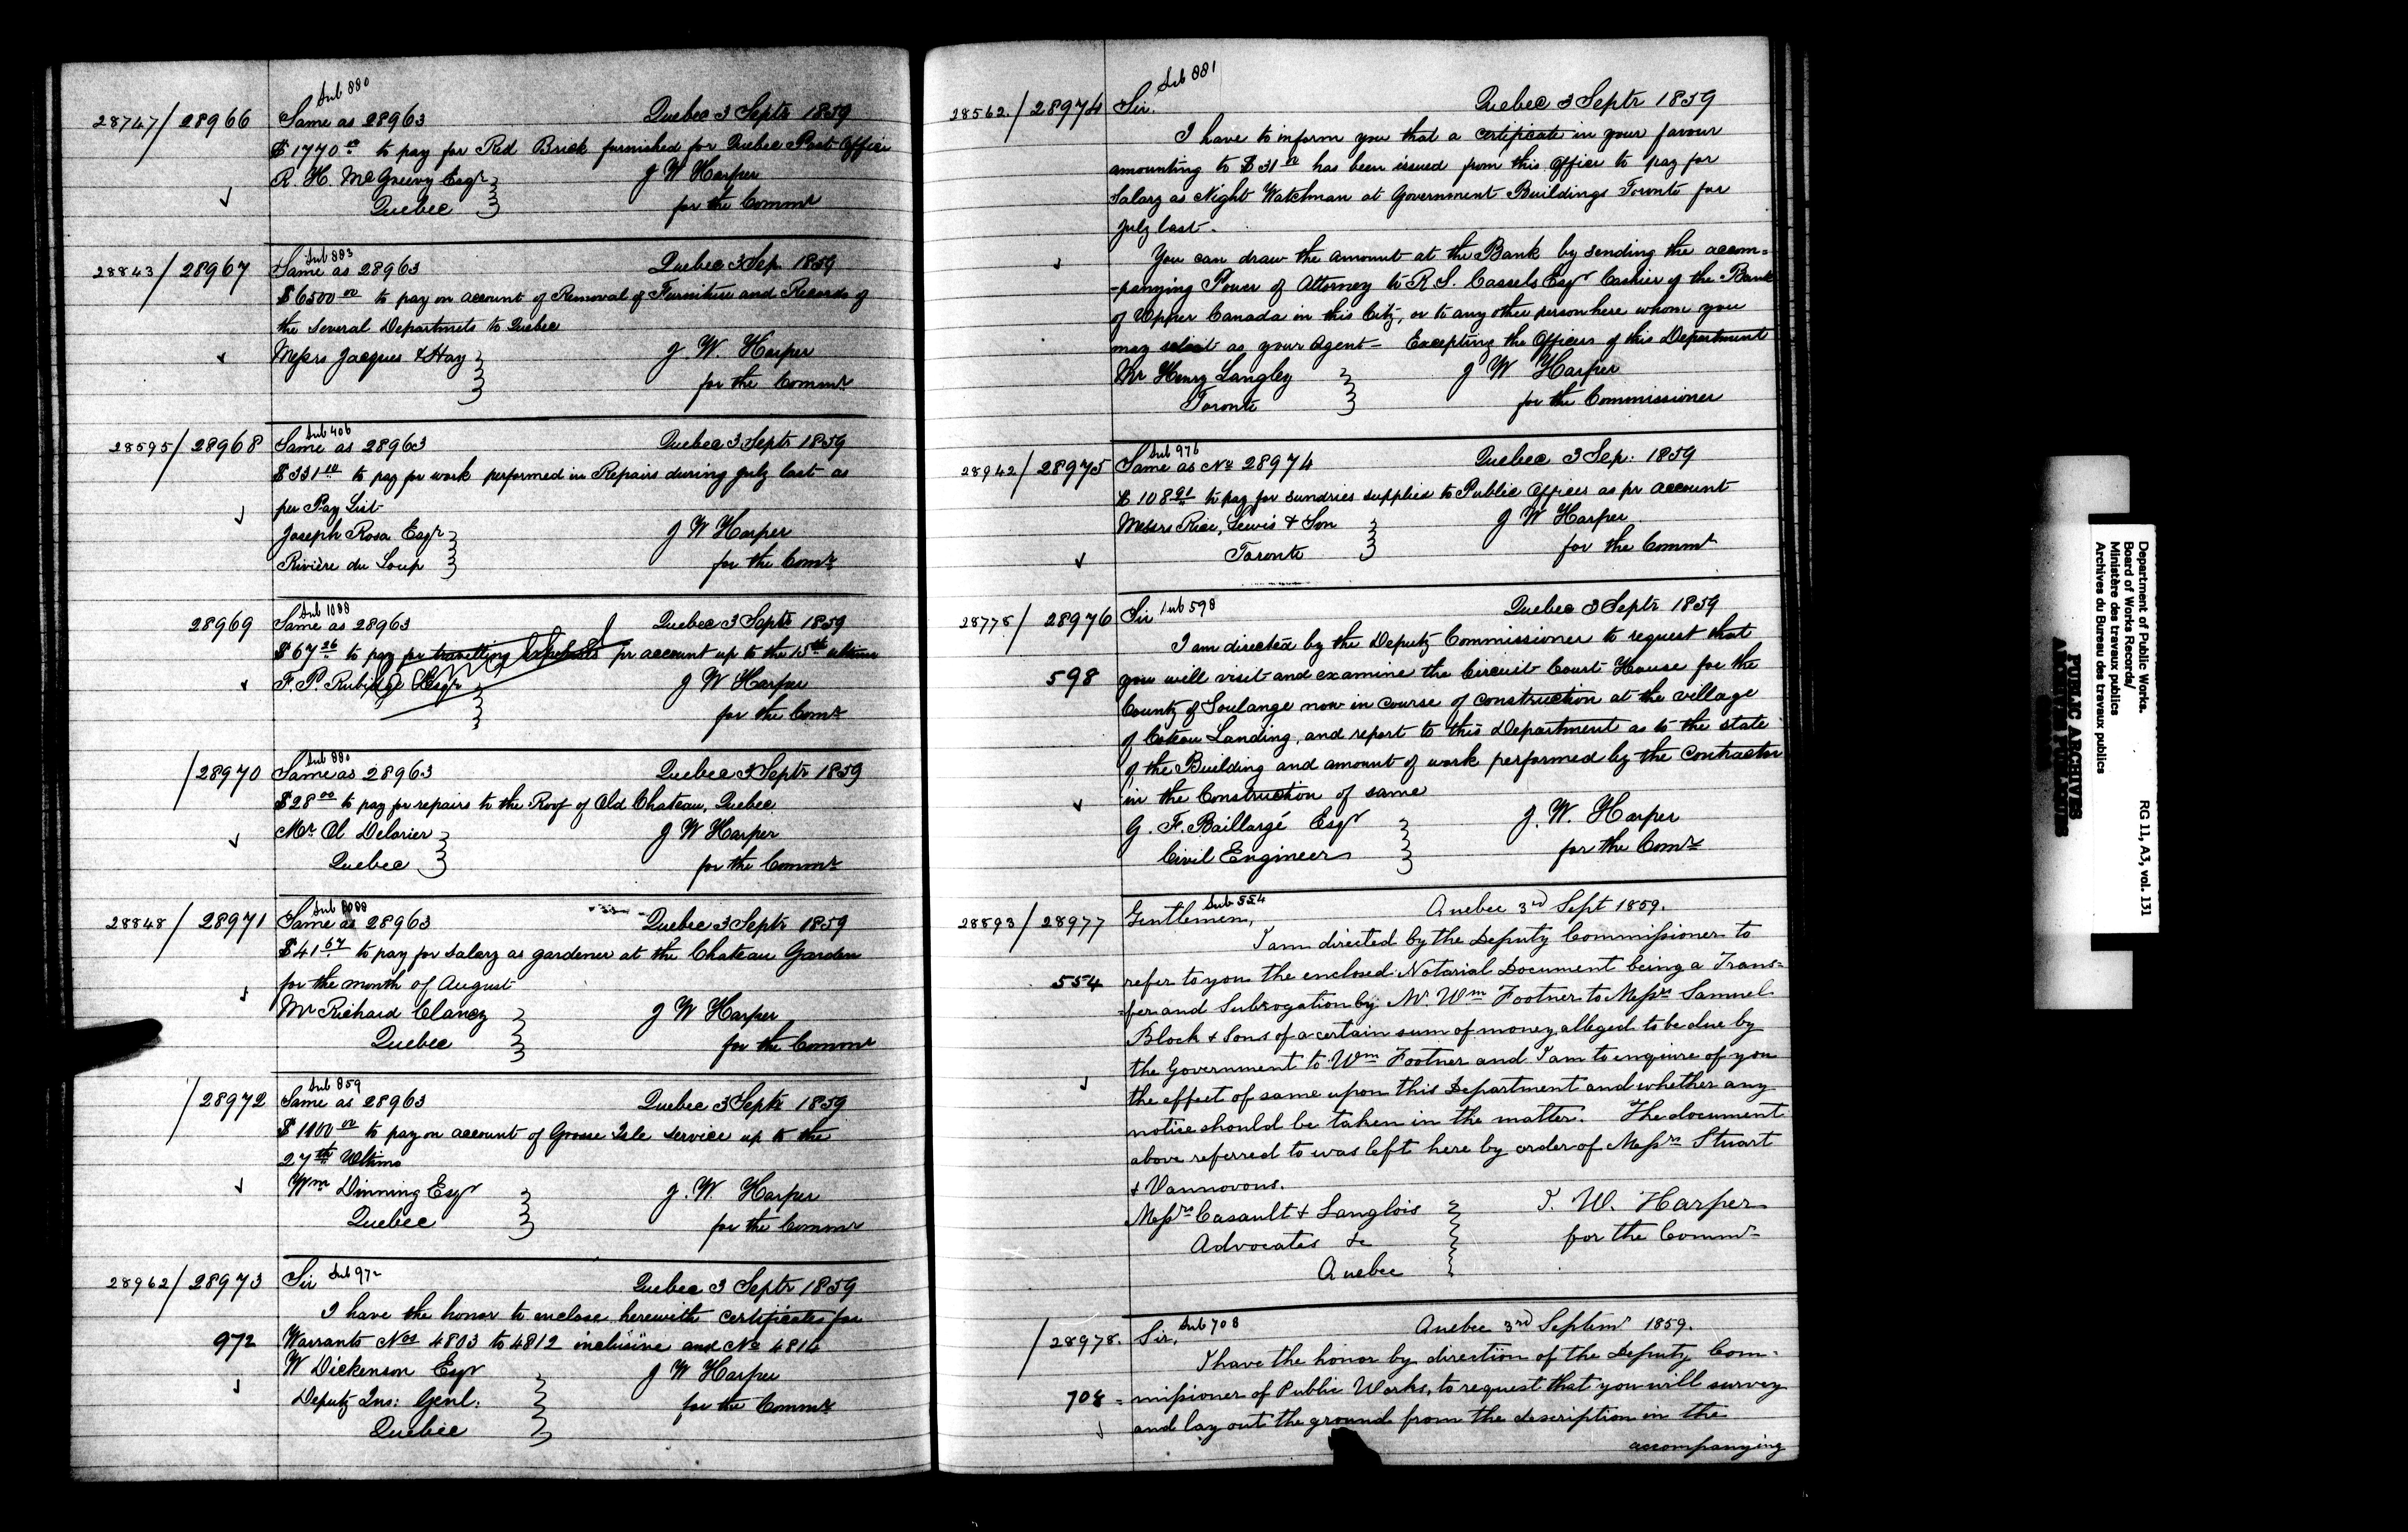 Sub 880
28747/28966 Same as 28963 Quebec 3 Septr 1859
$1770 00 to pay for Red Brick furnished for Quebec Post Office
R. H. McGreevy Esqr J W Harper
Quebec for the Commr
Sub 883
28843/28967 Same as 28963 Quebec 3 Sep 1859
$6500 00 to pay on account of Removal of Furniture and Records of
the several Departmets to Quebec
Messrs Jacques & Hay J. W. Harper
for the Commr
Sub 406
28595/28968 Same as 28963 Quebec 3 Septr 1859
$331 10 to pay for work performed in Repairs during July last as
per Pay List
Joseph Rosa Esqr J W Harper
Rivière du Loup for the Comr
Sub 1088
28969 Same as 28963 Quebec 3 Septr 1859
$67 26 to pay for travelling expenses pr account up to the 15th ultimo
F. P. Rubidge Esqr J W Harper
for the Comr
Sub 880
/28970 Same as 28963 Quebec 3 Septr 1859
$28 00 to pay for repairs to the Roof of Old Chateau, Quebec
Mr Ol Delarier J W Harper
Quebec for the Commr
28848/28971 Same as 28963 Quebec 3 Septr 1859
$41 67 to pay for salary as gardener at the Chateau Garden
for the month of August
Mr Richard Clancy J W Harper
Quebec for the Commr
Sub 859
/28972 Same as 28963 Quebec 3 Septr 1859
$1100 00 to pay on account of Grosse Isle service up to the
27th Ultimo
Wm Dinning Esqr J. W Harper
Quebec for the Commr
28962/28973 Sir Sub 972 Quebec 3 Septr 1859
I have the honor to enclose herewith certificates for
972 Warrants Nos 4803 to 4812 inclusive and No 4814
W Dickenson Esqr J W Harper
Deputy Ins: Genl: for the Commr
Quebec
Sub 881
28562/28974 Sir. Quebec 3 Septr 1859
I have to inform you that a certificate in your favour
amounting to $31 00 has been issued from this Office to pay for
Salary as Night Watchman at Government Buildings Toronto for
July last.
You can draw the amount at the Bank by sending the accom=
-panying Power of Attorney to R. S. Cassels Esqr Cashier of the Bank
of Upper Canada in this City, or to any other person here whom you
may select as your Agent - Excepting the Officers of this Department
Mr Henry Langley J W Harper
Toronto for the Commissioner
Sub 976
28942/28975 Same as No 28974 Quebec 3 Sep: 1859
$108 91 to pay for sundries supplied to Public Offices as pr account
Messrs Rice, Lewis & Son J W Harper
Toronto for the Commr
28778/28976 Sir Sub 598 Quebec 3 Septr 1859
I am directed by the Deputy Commissioner to request that
598 you will visit and examine the Circuit Court House for the
County of Soulange now in course of construction at the village
of Coteau Landing, and report to this Department as to the state
of the Building and amount of work performed by the Contractor
in the Construction of same
G. F. Baillargé Esqr J. W. Harper
Civil Engineer for the Comr
28893/28977 Gentlemen, Sub 554 Quebec 3rd Sept 1859.
I am directed by the Deputy Commissioner to
554 refer to you the enclosed Notarial Document being a Trans=
=fer and Subrogation by Mr. Wm Footner to Messrs Samuel
Block & Sons of a certain sum of money alleged to be due by
the Government to Wm Footner and I am to enquire of you
the effect of same upon this Department and whether any
notice should be taken in the matter. The document
above referred to was left here by order of Messrs Stuart
& Vannovous.
Messrs Casault & Langlois J. W. Harper
Advocates &c for the Commr
Quebec
/28978. Sir, Sub 708 Quebec 3rd Septemr 1859.
I have the honor by direction of the Deputy Com=
708 =missioner of Public Works, to request that you will survey
and lay out the ground from the description in the
accompanying
Department of Public Works.
Board of Works Records/
Ministère des travaux publics
Archives du Bureau des travaux publics
RG 11, A3, vol. 131
PUBLIC ARCHIVES